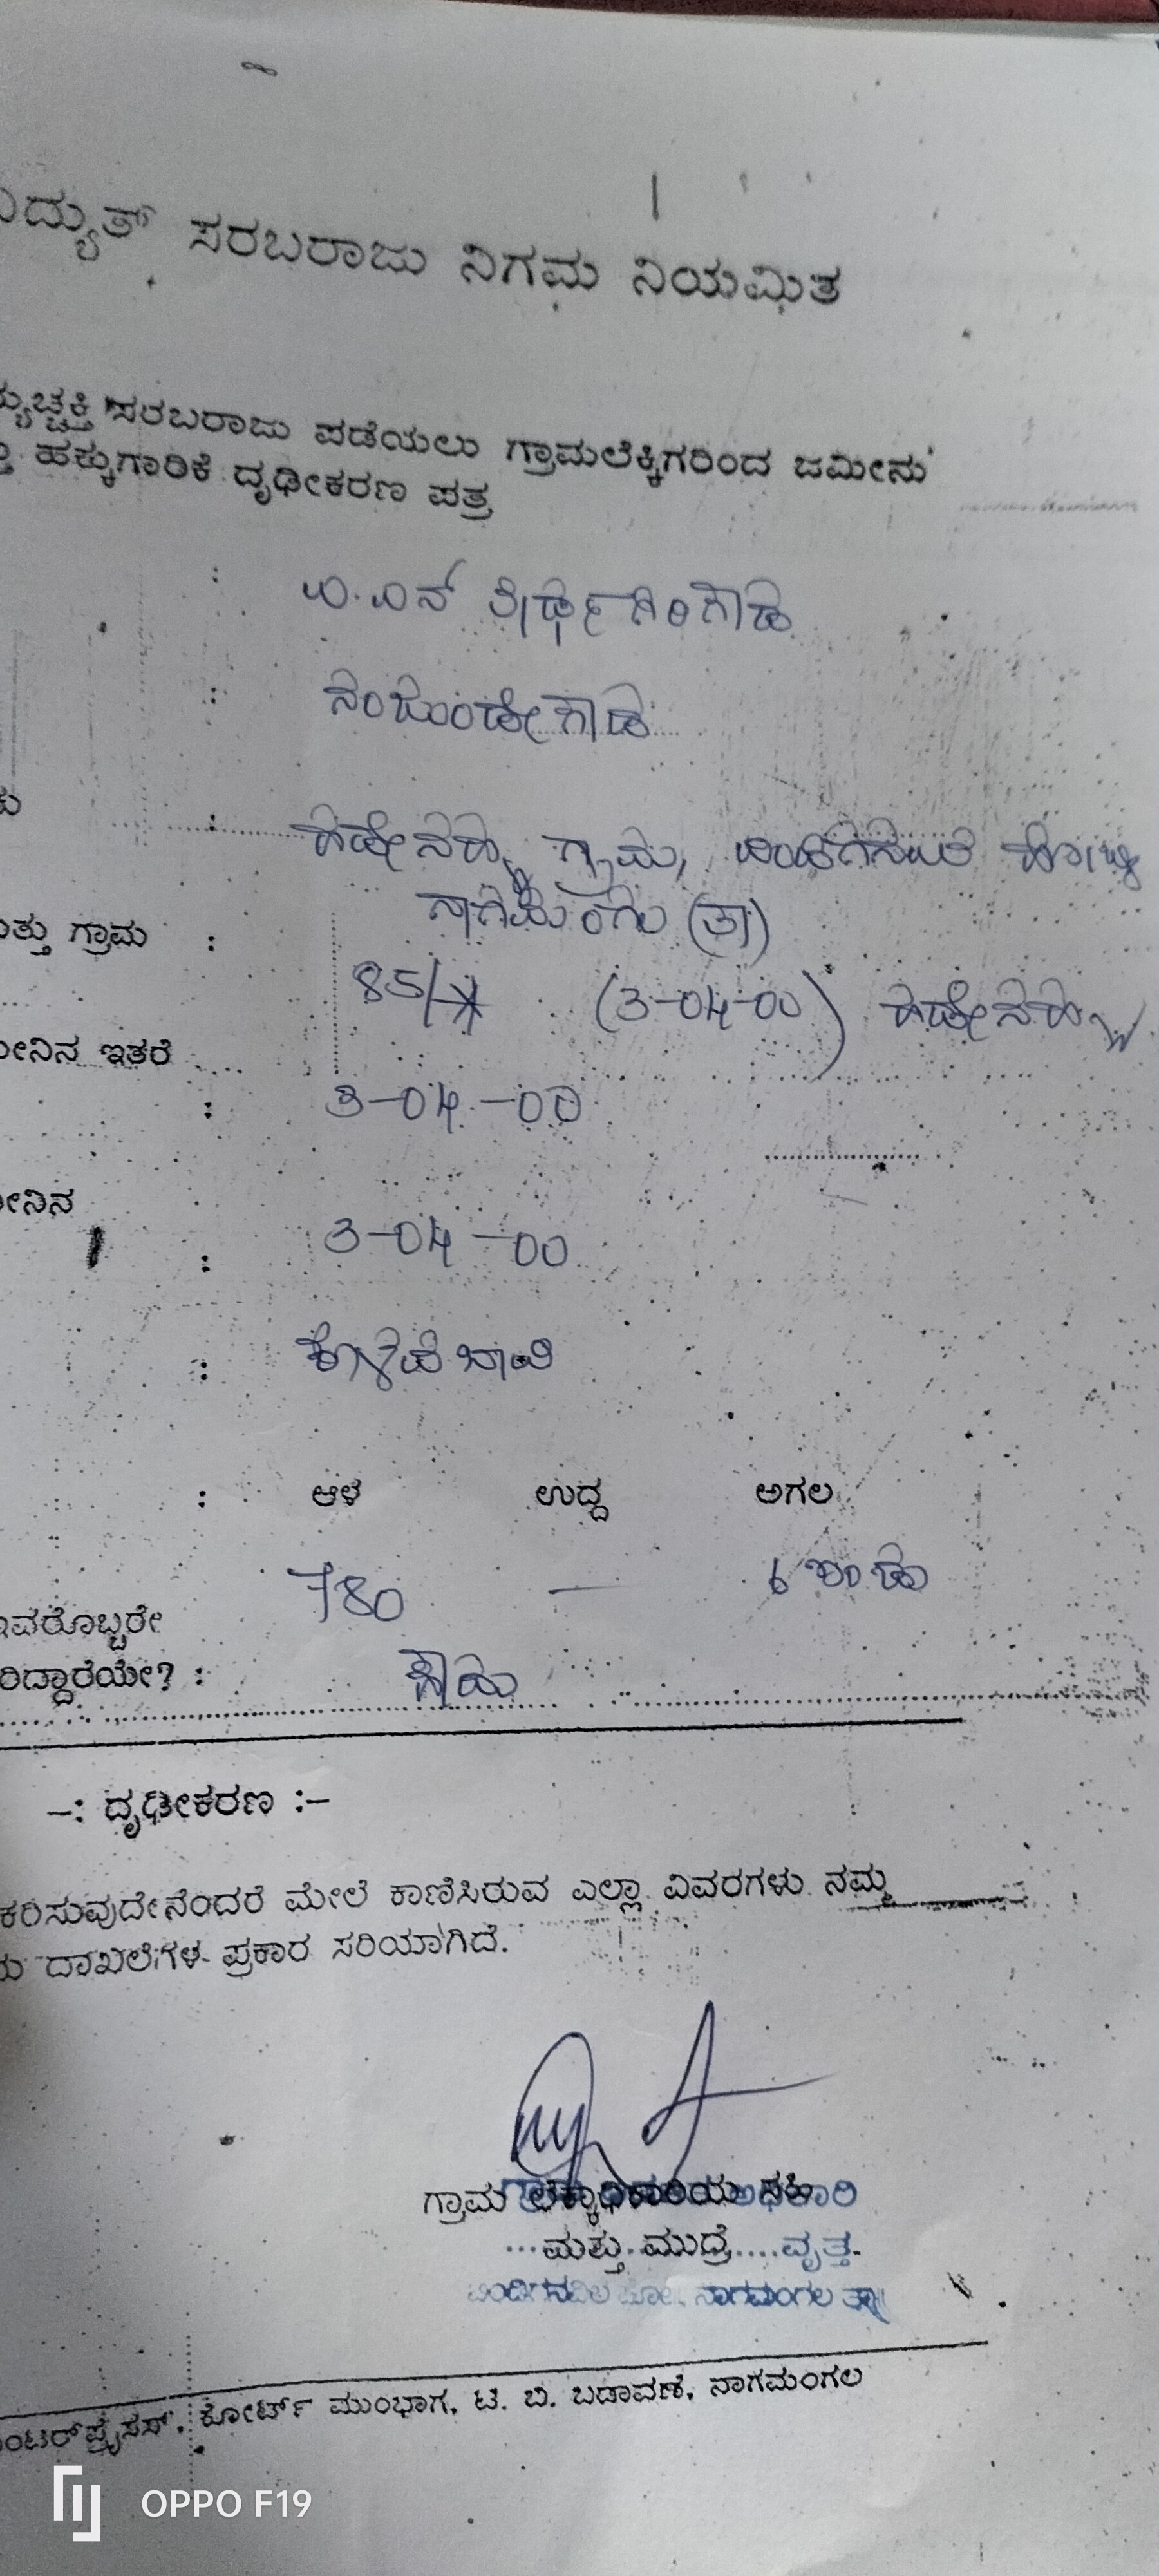 ವಿದ್ಯುತ್ ಸರಬರಾಜು ನಿಗಮ ನಿಯಮಿತ
ದ್ಯುಚ್ಛಕ್ತಿ ಸರಬರಾಜು ಪಡೆಯಲು ಗ್ರಾಮಲೆಕ್ಕಿಗರಿಂದ ಜಮೀನು
ಹಕ್ಕುಗಾರಿಕೆ ದೃಢೀಕರಣ ಪತ್ರ
:
: ನಂಜುಂಡೇಗೌಡ
: ಗ್ರಾಮ,
ನಾಗಮಂಗಲ (ತಾ)
ತ್ತು ಗ್ರಾಮ :
85/ (3-04-00)
ೀನಿನ ಇತರೆ
: 3-04-00
ೀನಿನ
: 3-04-00
: ಕೊಳವೆ ಬಾವಿ
: ಆಳ ಉದ್ದ ಅಗಲ
780 — 6 ಇಂಚು
ಇವರೊಬ್ಬರೇ
ರಿದ್ದಾರೆಯೇ? : ಹೌದು
–: ದೃಢೀಕರಣ :–
ಕರಿಸುವುದೇನೆಂದರೆ ಮೇಲೆ ಕಾಣಿಸಿರುವ ಎಲ್ಲಾ ವಿವರಗಳು ನಮ್ಮ
ದಾಖಲೆಗಳ ಪ್ರಕಾರ ಸರಿಯಾಗಿದೆ.
ಗ್ರಾಮ ಲೆಕ್ಕಾಧಿಕಾರಿಯ ಸಹಿ
ಮತ್ತು ಮುದ್ರೆ ವೃತ್ತ.
ನಾಗಮಂಗಲ ತಾ||
ಂಟರ್‌ಪ್ರೈಸಸ್, ಕೋರ್ಟ್ ಮುಂಭಾಗ, ಟಿ. ಬಿ. ಬಡಾವಣೆ, ನಾಗಮಂಗಲ
OPPO F19